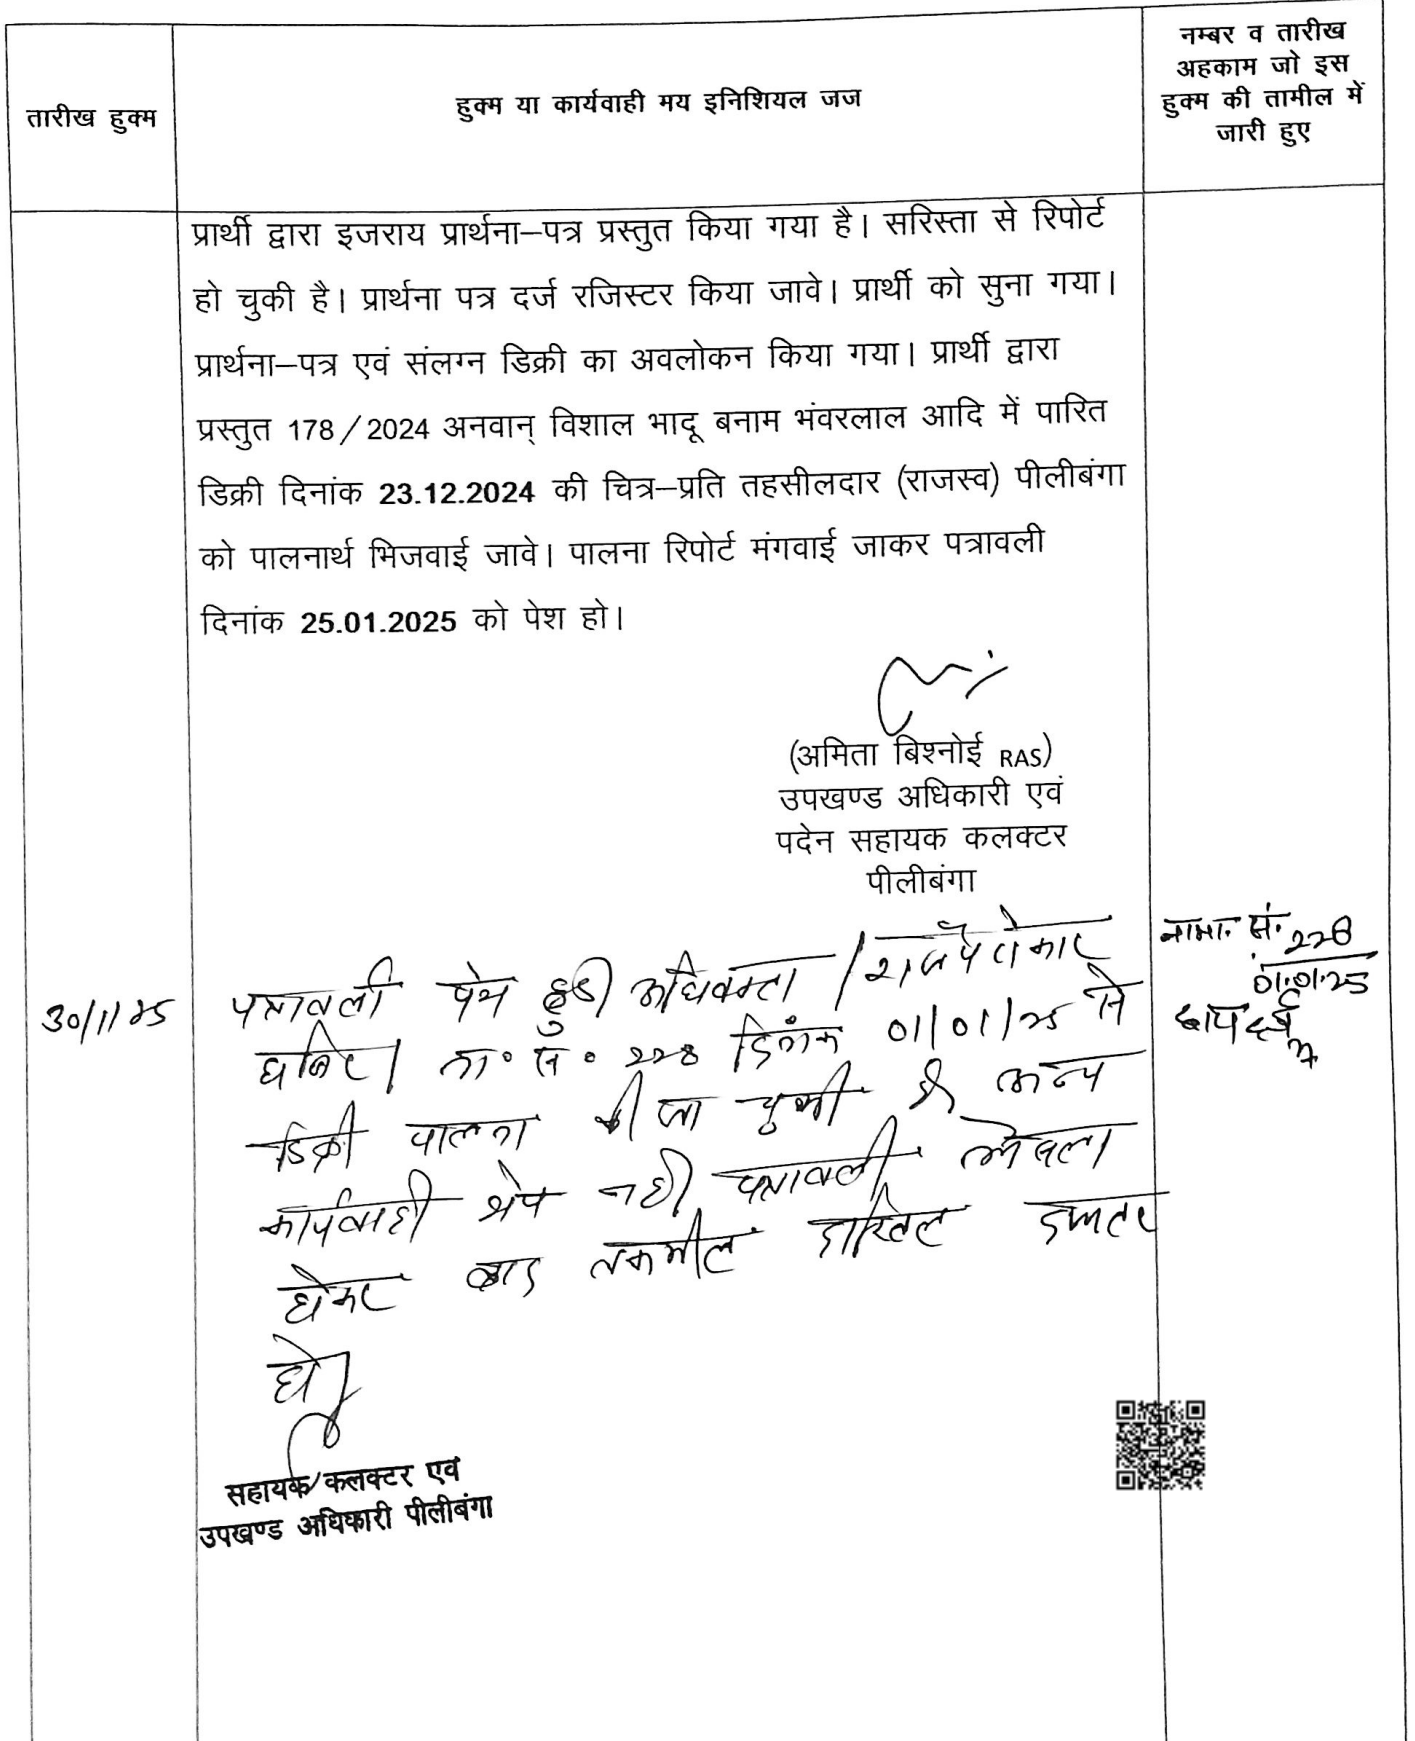 तारीख हुक्म
हुक्म या कार्यवाही मय इनिशियल जज
नम्बर व तारीख
अहकाम जो इस
हुक्म की तामील में
जारी हुए
प्रार्थी द्वारा इजराय प्रार्थना–पत्र प्रस्तुत किया गया है। सरिस्ता से रिपोर्ट
हो चुकी है। प्रार्थना पत्र दर्ज रजिस्टर किया जावे। प्रार्थी को सुना गया।
प्रार्थना–पत्र एवं संलग्न डिक्री का अवलोकन किया गया। प्रार्थी द्वारा
प्रस्तुत 178/2024 अनवान् विशाल भादू बनाम भंवरलाल आदि में पारित
डिक्री दिनांक 23.12.2024 की चित्र–प्रति तहसीलदार (राजस्व) पीलीबंगा
को पालनार्थ भिजवाई जावे। पालना रिपोर्ट मंगवाई जाकर पत्रावली
दिनांक 25.01.2025 को पेश हो।
(अमिता बिश्नोई RAS)
उपखण्ड अधिकारी एवं
पदेन सहायक कलक्टर
पीलीबंगा
नामा. सं. 228
01.01.25
30/1/25
पत्रावली पेश हुई अधिवक्ता / राजपैरोकार
हाजिर। ना० सं० 228 दिनांक 01/01/25 से
डिक्री पालना की जा चुकी है अन्य
कार्यवाही शेष नही पत्रावली फैसला
होकर बाद तकमील दाखिल दफ्तर
हो।
सहायक कलक्टर एवं
उपखण्ड अधिकारी पीलीबंगा